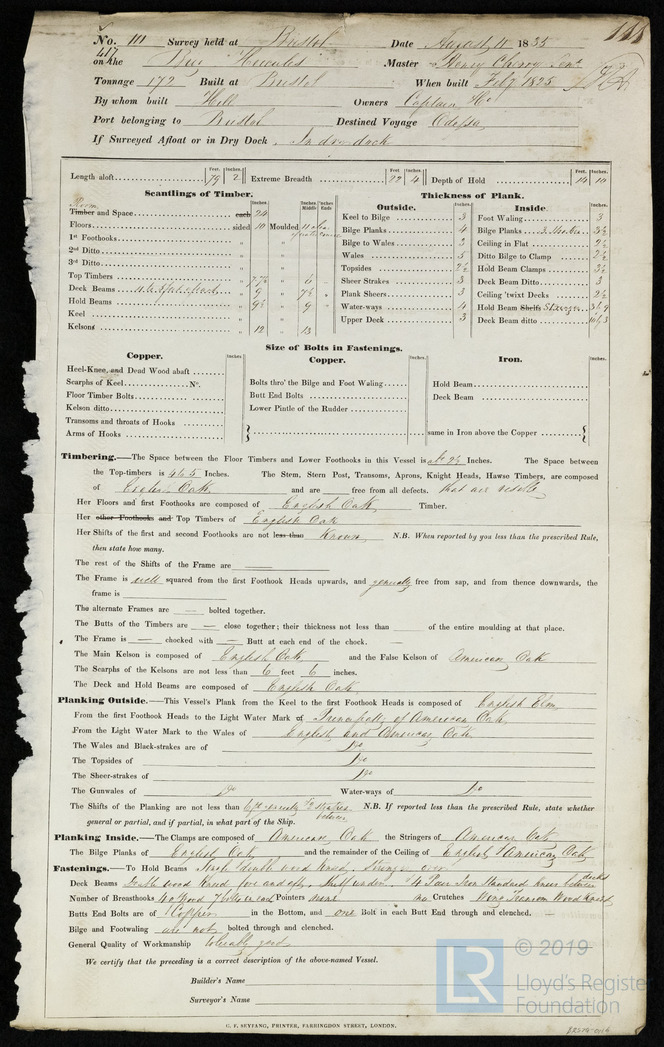 No. 111 Survey held at Bristol Date August 11 1835
417
on the Brig Hercules Master Henry Cherry Senr
Tonnage 172 Built at Bristol When built Feby 1825
By whom built Hill Owners Captain &
Port belonging to Bristol Destined Voyage Odessa
If Surveyed Afloat or in Dry Dock In dry dock
Length aloft 79 2 Extreme Breadth 22 4 Depth of Hold 14 10
Feet. Inches.
Scantlings of Timber. Thickness of Plank.
Outside. Inside.
Room
Timber and Space each 24 Keel to Bilge 3 Foot Waling 3
Floors sided 10 Moulded 11 Bilge Planks 4 Bilge Planks 3½
1st Foothooks Bilge to Wales 3 Ceiling in Flat 2½
2nd Ditto Wales 5 Ditto Bilge to Clamp 2½
3rd Ditto Topsides 2½ Hold Beam Clamps 3½
Top Timbers 6 Sheer Strakes 3 Deck Beam Ditto 3
Deck Beams 9 7½ Plank Sheers 3 Ceiling 'twixt Decks 2½
Hold Beams 9½ 9 Water-ways 4 Hold Beam Shelfs Stringer
Keel Upper Deck 3 Deck Beam ditto
Kelsons 12 13
Size of Bolts in Fastenings.
Copper. Copper. Iron.
Heel-Knee, and Dead Wood abaft
Scarphs of Keel No. Bolts thro' the Bilge and Foot Waling Hold Beam
Floor Timber Bolts Butt End Bolts Deck Beam
Kelson ditto Lower Pintle of the Rudder
Transoms and throats of Hooks
Arms of Hooks same in Iron above the Copper
Timbering.—The Space between the Floor Timbers and Lower Foothooks in this Vessel is abt 2½ Inches. The Space between
the Top-timbers is 4 to 5 Inches. The Stem, Stern Post, Transoms, Aprons, Knight Heads, Hawse Timbers, are composed
of English Oak and are free from all defects. that are visible
Her Floors and first Foothooks are composed of English Oak Timber.
Her other Foothooks and Top Timbers of English Oak
Her Shifts of the first and second Foothooks are not less than Known N.B. When reported by you less than the prescribed Rule,
then state how many.
The rest of the Shifts of the Frame are
The Frame is well squared from the first Foothook Heads upwards, and generally free from sap, and from thence downwards, the
frame is
The alternate Frames are — bolted together.
The Butts of the Timbers are — close together; their thickness not less than of the entire moulding at that place.
The Frame is — chocked with — Butt at each end of the chock. —
The Main Kelson is composed of English Oak and the False Kelson of American Oak
The Scarphs of the Kelsons are not less than 6 feet 6 inches.
The Deck and Hold Beams are composed of English Oak
Planking Outside.—This Vessel's Plank from the Keel to the first Foothook Heads is composed of English Elm
From the first Foothook Heads to the Light Water Mark of Principally of American Oak
From the Light Water Mark to the Wales of English and American Oak
The Wales and Black-strakes are of Do
The Topsides of Do
The Sheer-strakes of Do
The Gunwales of Do Water-ways of Do
The Shifts of the Planking are not less than N.B. If reported less than the prescribed Rule, state whether
general or partial, and if partial, in what part of the Ship. between
Planking Inside.—The Clamps are composed of American Oak the Stringers of American Oak
The Bilge Planks of English Oak and the remainder of the Ceiling of English & American Oak
Fastenings.—To Hold Beams double wood knees, Stringer over
Deck Beams wood knees fore and aft, Shelf under 4 Pair Iron Standard knees between decks
Number of Breasthooks Pointers none no. Crutches Wing Transom Wood knees
Butts End Bolts are of Copper in the Bottom, and one Bolt in each Butt End through and clenched. —
Bilge and Footwaling are not bolted through and clenched.
General Quality of Workmanship tolerably good
We certify that the preceding is a correct description of the above-named Vessel.
Builder's Name
Surveyor's Name
C. F. SEYFANG, PRINTER, FARRINGDON STREET, LONDON.
LR © 2019
Lloyd's Register
Foundation